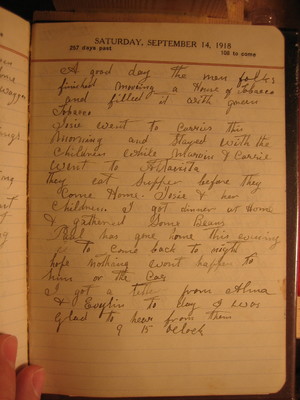 SATURDAY, SEPTEMBER 14, 1918
257 days past
108 to come
A good day the men folks
finished mowing a House of Tobacco
and filled it with green
Tobacco
Josie went to Carries this
Morning and Stayed with the
Children while Marvin & Carrie
went to Altavista
they eat Supper before they
Come Home. Josie & her
Children. I got dinner at Home
& gathered Some Beans
has gone home this evening
to Come back to night
hope nothing wont happen to
him or the Car
I got a letter from Alma
& Evylin to day & was
glad to hear from them
9 15 oclock